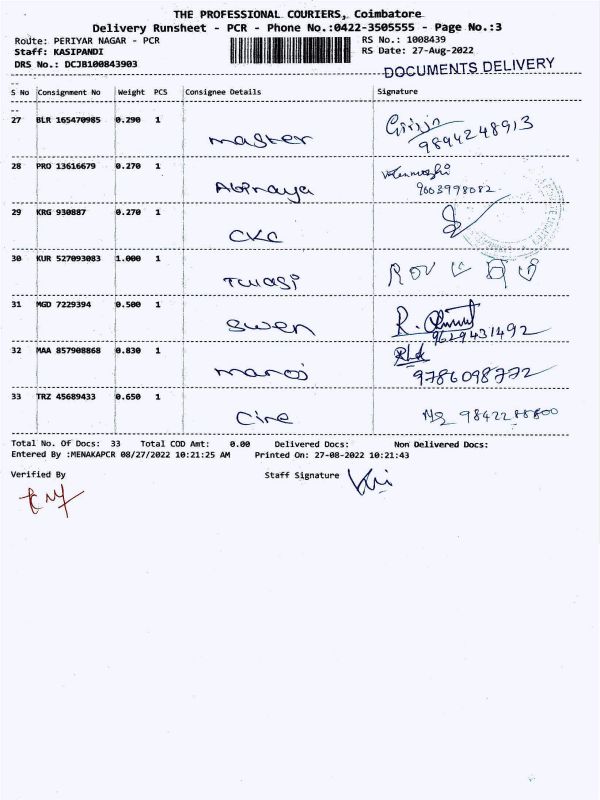 THE PROFESSIONAL COURIERS, Coimbatore
Delivery Runsheet - PCR - Phone No.:0422-3505555 - Page No.:3
Route: PERIYAR NAGAR - PCR RS No.: 1008439
Staff: KASIPANDI RS Date: 27-Aug-2022
DRS No.: DCJB100843903
DOCUMENTS DELIVERY
S No Consignment No Weight PCS Consignee Details Signature
27 BLR 165470985 0.290 1 master
9894248913
28 PRO 13616679 0.270 1 Abinaya
9003998082
29 KRG 930887 0.270 1 CKC
30 KUR 527093083 1.000 1
31 MGD 7229394 0.500 1 Swen
9629431492
32 MAA 857908868 0.830 1 manoj
9786098772
33 TRZ 45689433 0.650 1 Cine
Total No. Of Docs: 33 Total COD Amt: 0.00 Delivered Docs: Non Delivered Docs:
Entered By :MENAKAPCR 08/27/2022 10:21:25 AM Printed On: 27-08-2022 10:21:43
Verified By Staff Signature